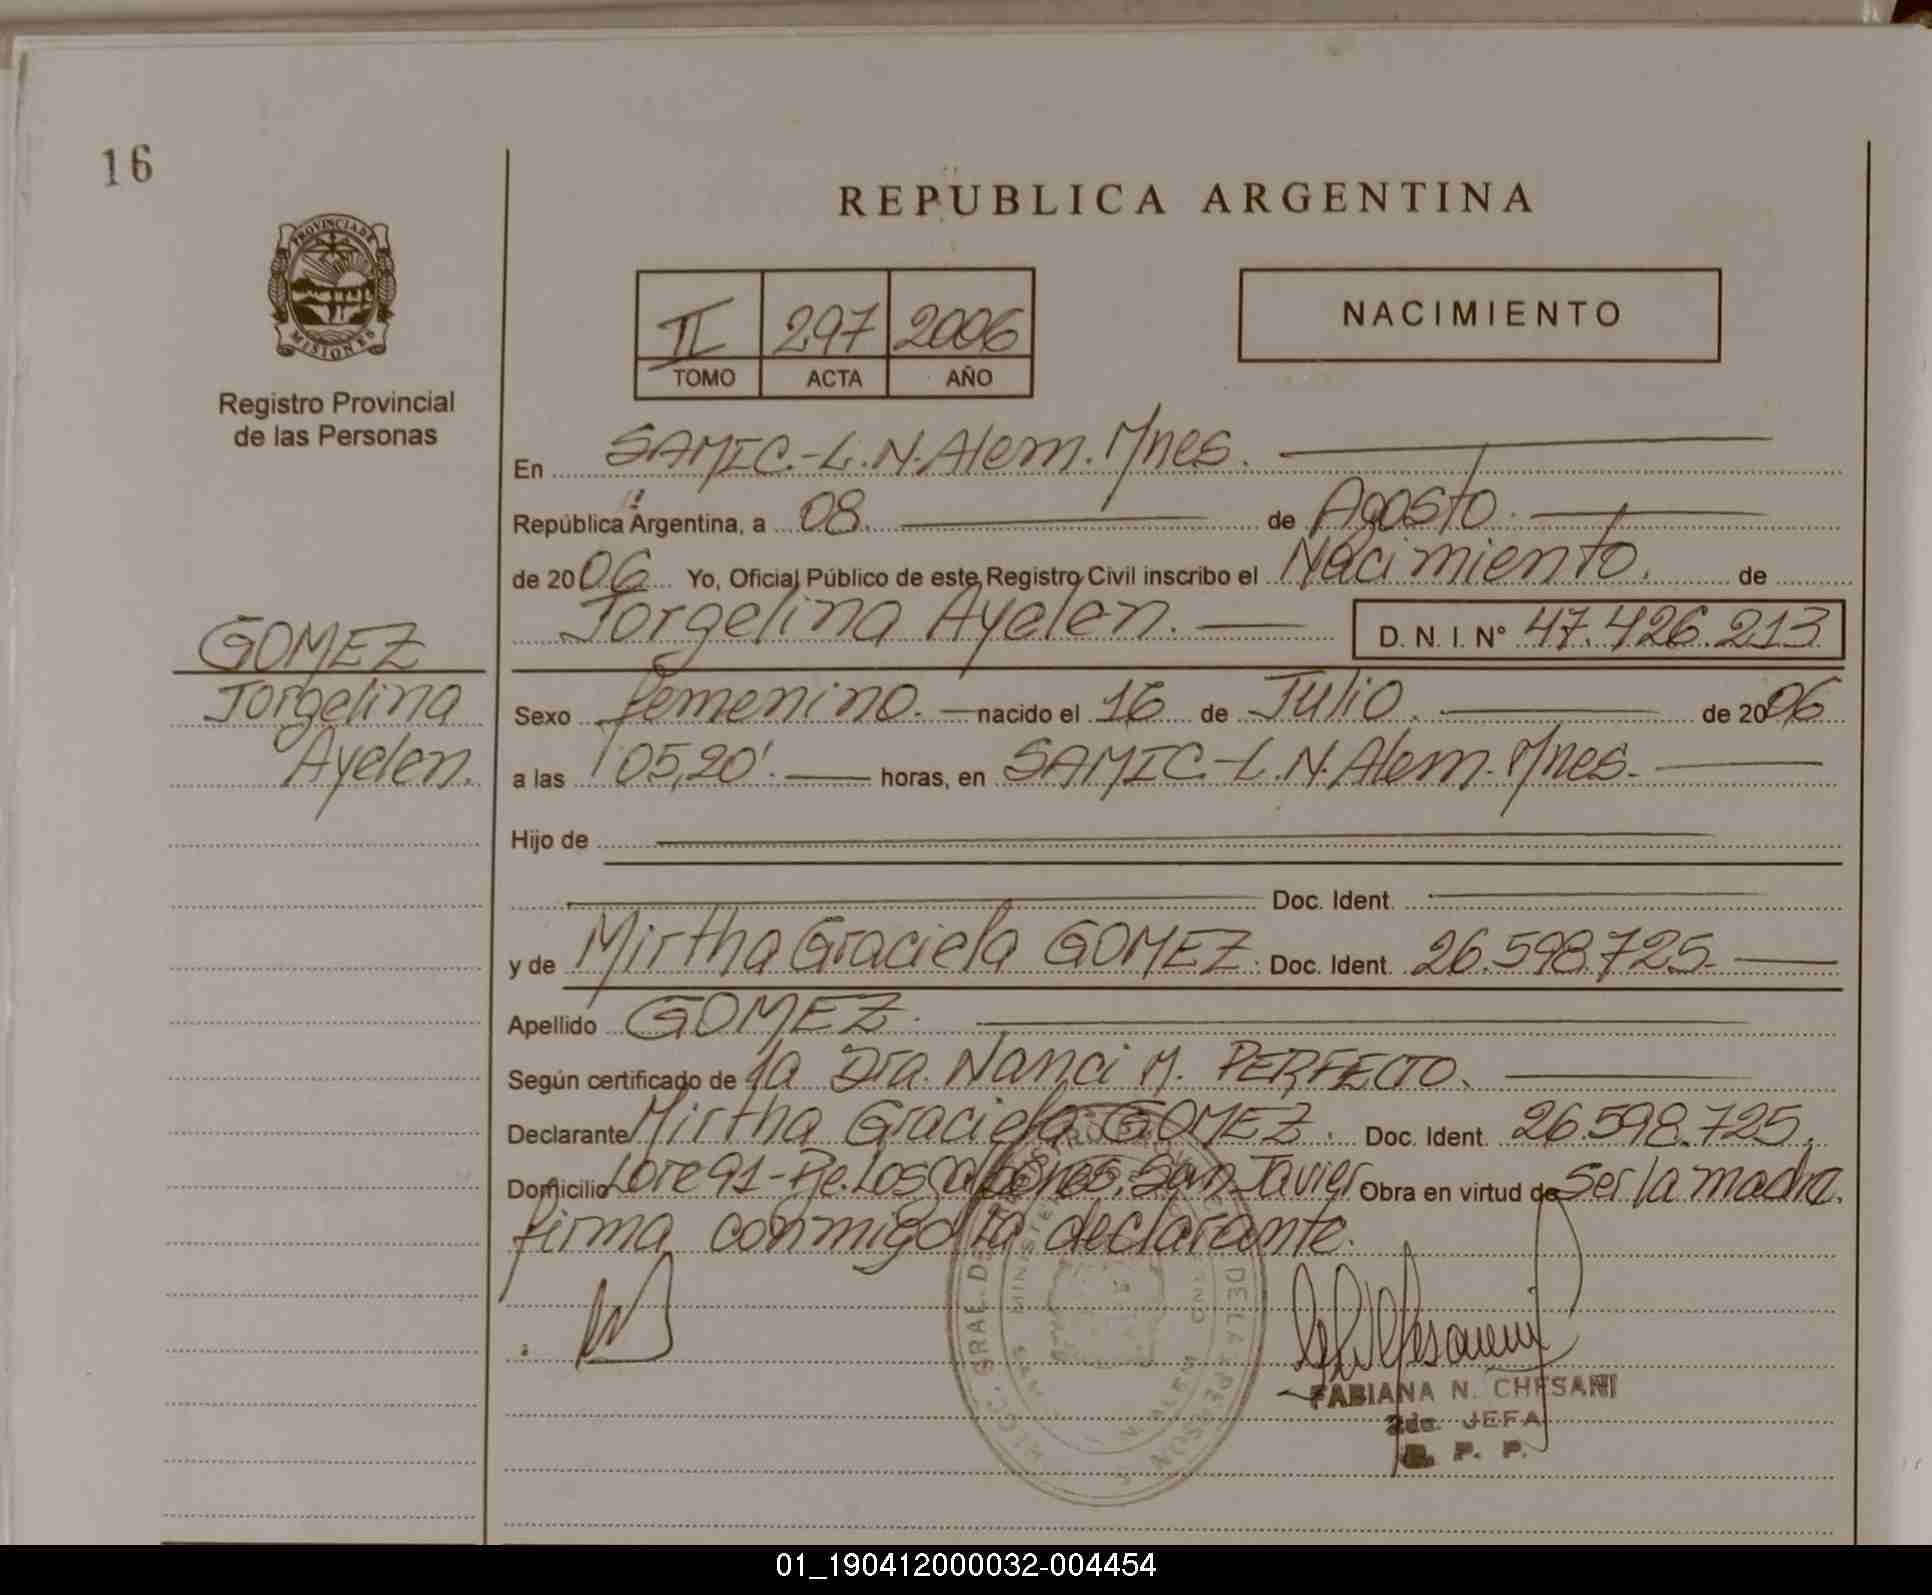 16
REPUBLICA ARGENTINA
PROVINCIA DE
MISIONES
Registro Provincial
de las Personas
II 297 2006
TOMO ACTA AÑO
NACIMIENTO
En SAMIC.-L.N.Alem. Mnes.
República Argentina, a 08. de Agosto.
de 2006 Yo, Oficial Público de este Registro Civil inscribo el Nacimiento. de
Jorgelina Ayelen. D. N. I. N° 47.426.213
GOMEZ
Jorgelina
Ayelen.
Sexo femenino. nacido el 16 de Julio. de 2006
a las 05,20'. horas, en SAMIC.-L.N.Alem. Mnes.
Hijo de
Doc. Ident.
y de Mirtha Graciela GOMEZ. Doc. Ident. 26.598.725.
Apellido GOMEZ.
Según certificado de la Dra. Nanci M. PERFECTO.
Declarante Mirtha Graciela GOMEZ. Doc. Ident. 26.598.725.
Domicilio Lote 91- San Javier Obra en virtud de Ser la madre.
firma conmigo la declarante.
FABIANA N. CHESANI
2da. JEFA
R. P. P.
01_190412000032-004454